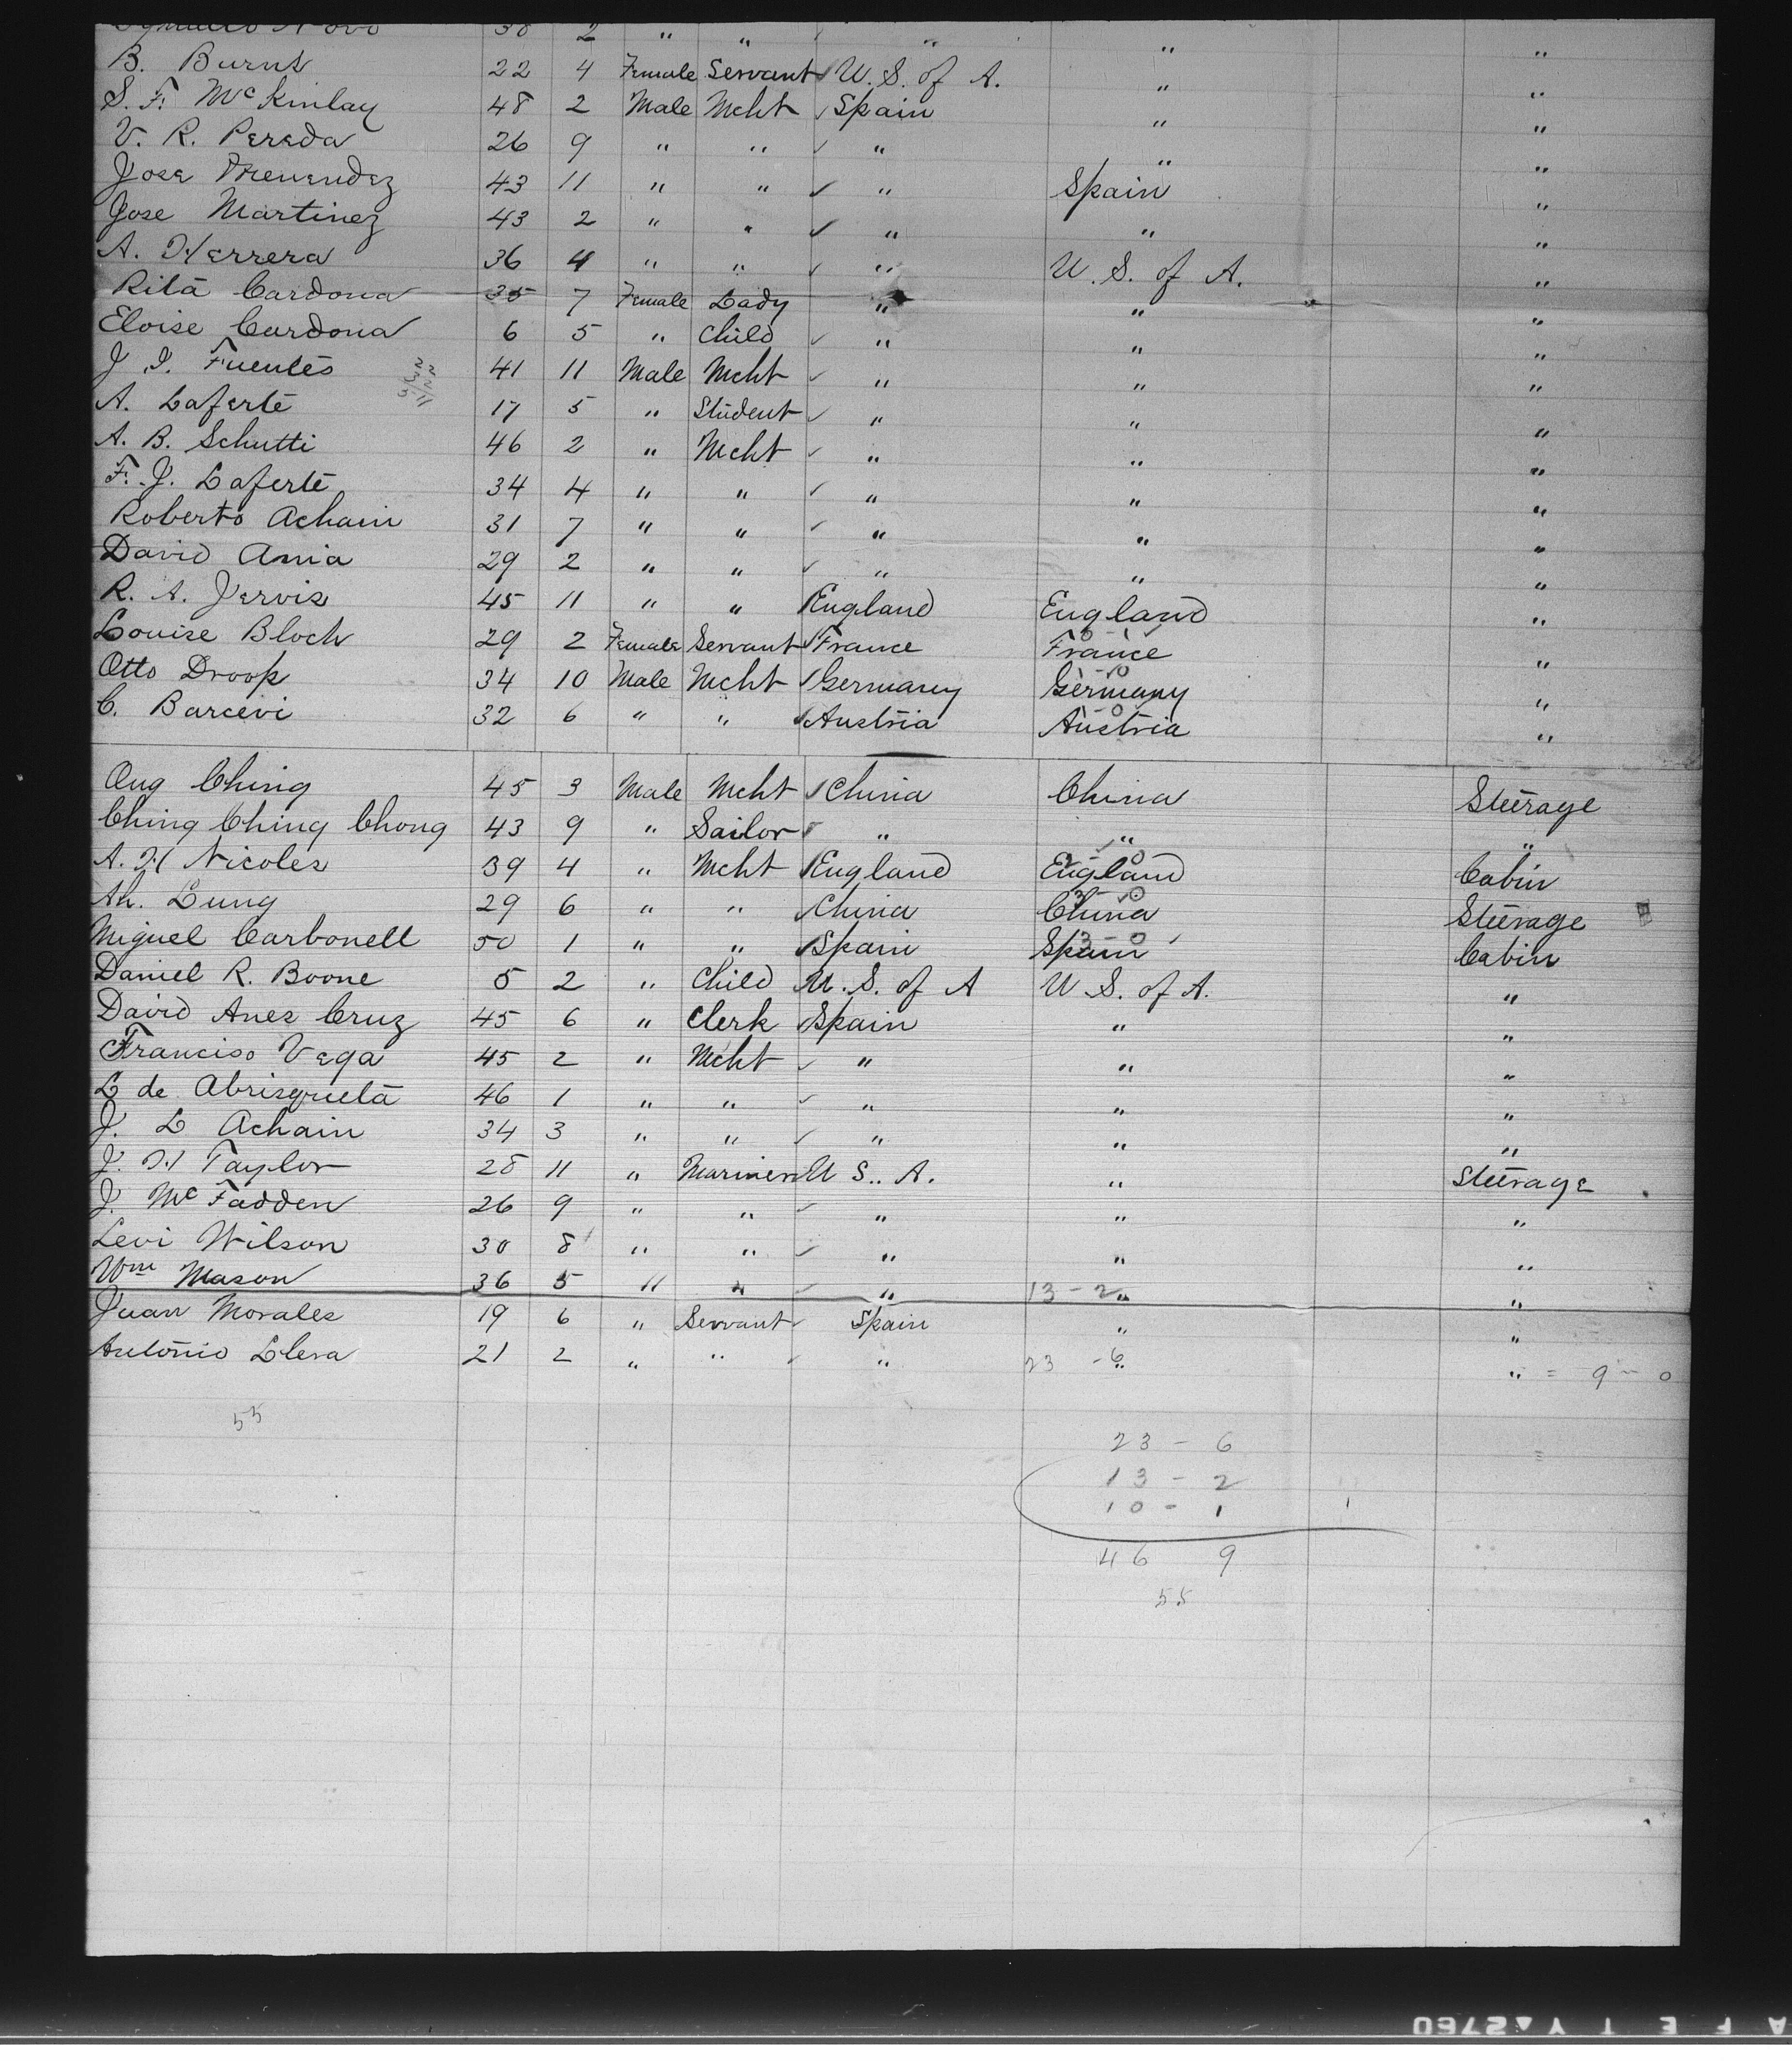 38 2 " " " " "
B. Burns 22 4 Female Servant ✓ U. S. of A. " "
S. F. McKinlay 48 2 Male Mcht ✓ Spain " "
V. R. Pereda 26 9 " " ✓ " " "
Jose Menendez 43 11 " " ✓ " Spain "
Jose Martinez 43 2 " " ✓ " " "
A. Herrera 36 4 " " ✓ " U. S. of A. "
Rita Cardona 35 7 Female Lady " " "
Eloise Cardona 6 5 " Child ✓ " " "
J. I. Fuentes 41 11 Male Mcht ✓ " " "
A. Laferte 17 5 " Student ✓ " " "
A. B. Schutti 46 2 " Mcht ✓ " " "
F. J. Laferte 34 4 " " ✓ " " "
Roberto Achain 31 7 " " ✓ " " "
David Ania 29 2 " " ✓ " " "
R. A. Jervis 45 11 " " ✓ England England "
Louise Bloch 29 2 Female Servant ✓ France France "
Otto Droop 34 10 Male Mcht ✓ Germany Germany "
C. Barcevi 32 6 " " ✓ Austria Austria "
Ong Ching 45 3 Male Mcht ✓ China China Steerage
Ching Ching Chong 43 9 " Sailor ✓ " " "
A. H Nicoles 39 4 " Mcht ✓ England England Cabin
Ah. Lung 29 6 " " ✓ China China Steerage
Miguel Carbonell 50 1 " " ✓ Spain Spain Cabin
Daniel R. Boone 5 2 " Child U. S. of A U S. of A. "
David Anes Cruz 45 6 " Clerk ✓ Spain " "
Franciso Vega 45 2 " Mcht ✓ " " "
L de Abrisqueta 46 1 " " ✓ " " "
J. L Achain 34 3 " " ✓ " " "
J. H Taylor 28 11 " Mariner U S.. A. " Steerage
J. McFadden 26 9 " " ✓ " " "
Levi Wilson 30 8 " " ✓ " " "
Wm Mason 36 5 " " ✓ " 13 - 2 " "
Juan Morales 19 6 " Servant ✓ Spain " "
Antonio Llera 21 2 " " ✓ " 23 - 6 " " = 9 - 0
55
23 - 6
13 - 2
10 - 1
46 9
55
A F E T Y ▲ 2760